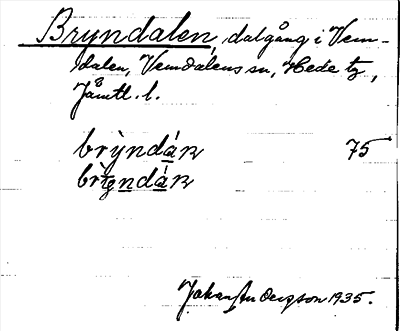 Bryndalen, dalgång i Vem-
dalen, Vemdalens sn, Hede tg,
Jämtl. l.
brỳndáʀ 75
Johan Anderson 1935.